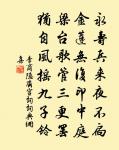 永壽兵來夜不扃
金蓮無復印中庭
梁台歌管三更罷
猶自風搖九子鈴
李商隱齊宮詞詞典網
喜